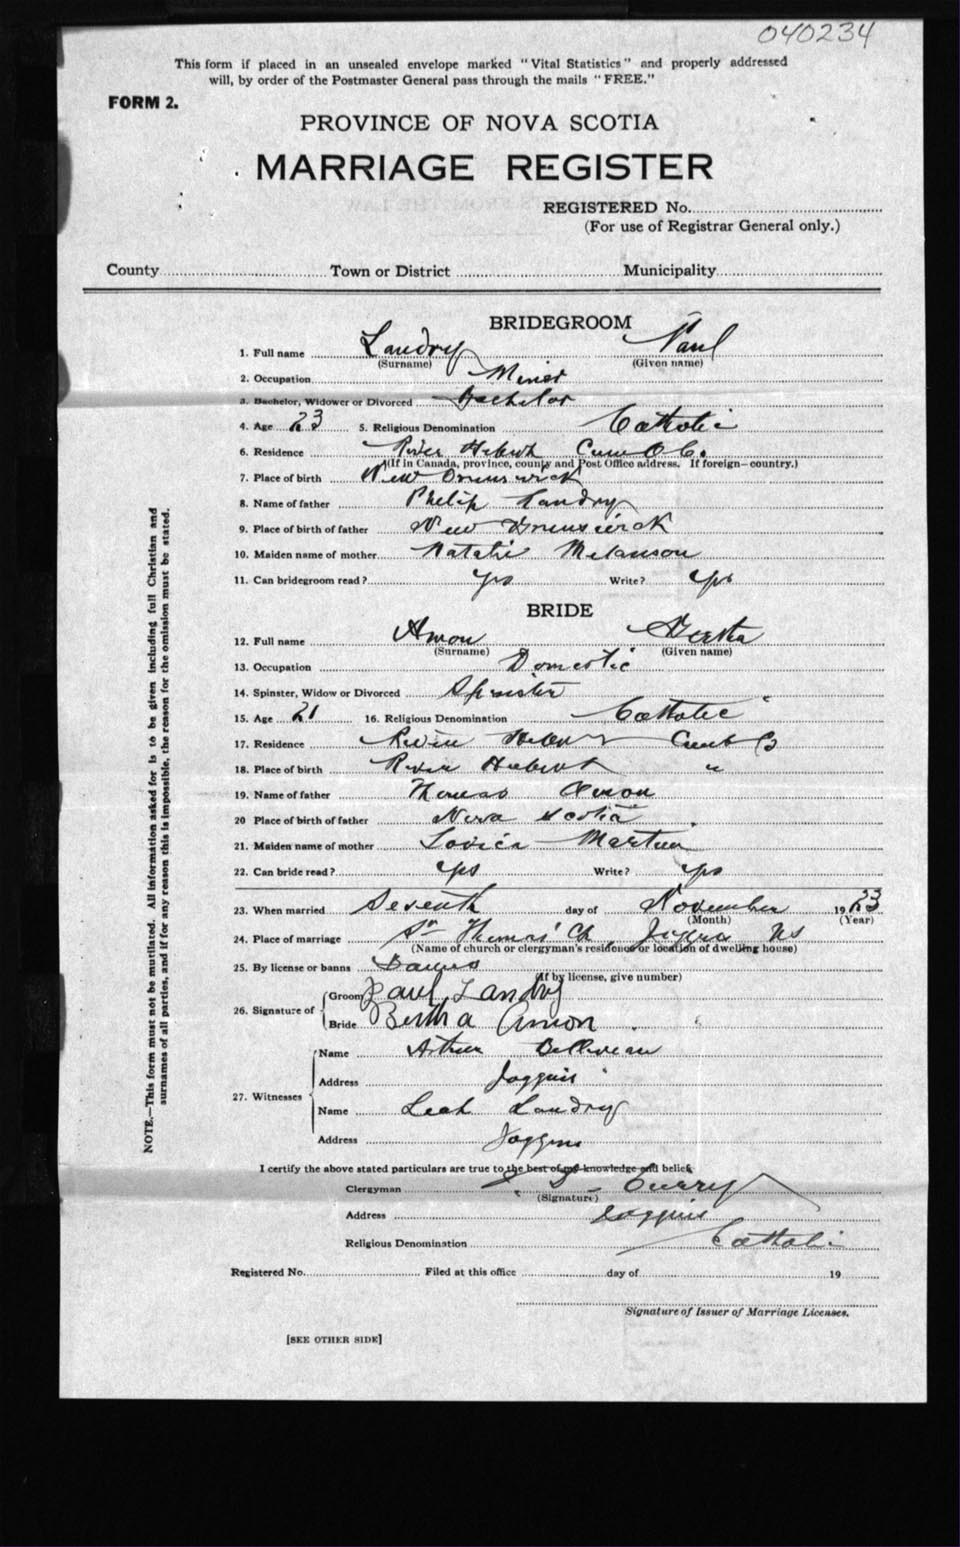 040234
This form if placed in an unsealed envelope marked "Vital Statistics" and properly addressed
will, by order of the Postmaster General pass through the mails "FREE."
FORM 2.
PROVINCE OF NOVA SCOTIA
MARRIAGE REGISTER
REGISTERED No.
(For use of Registrar General only.)
County Town or District Municipality
BRIDEGROOM
1. Full name Landry Paul
(Surname) (Given name)
2. Occupation Miner
3. Bachelor, Widower or Divorced Bachelor
4. Age 23 5. Religious Denomination Catholic
6. Residence River Hebert Cum Co.
(If in Canada, province, county and Post Office address. If foreign—country.)
7. Place of birth New Brunswick
8. Name of father Philip Landry
9. Place of birth of father New Brunswick
10. Maiden name of mother Natalie Melanson
11. Can bridegroom read? Yes Write? Yes
BRIDE
12. Full name Amon Bertha
(Surname) (Given name)
13. Occupation Domestic
14. Spinster, Widow or Divorced Spinster
15. Age 21 16. Religious Denomination Catholic
17. Residence River Hebert Cumb Co
18. Place of birth River Hebert "
19. Name of father Thomas Amon
20 Place of birth of father Nova Scotia
21. Maiden name of mother Martin
22. Can bride read? Yes Write? Yes
23. When married Seventh day of November 1923
(Month) (Year)
24. Place of marriage St Thomas' Ch, Joggins NS
(Name of church or clergyman's residence or location of dwelling house)
25. By license or banns Banns
(If by license, give number)
26. Signature of Groom Paul Landry
Bride Bertha Amon
27. Witnesses Name Arthur Belliveau
Address Joggins
Name Leah Landry
Address Joggins
I certify the above stated particulars are true to the best of my knowledge and belief.
Clergyman Curry
(Signature)
Address Joggins
Religious Denomination Catholic
Registered No. Filed at this office day of 19
Signature of Issuer of Marriage Licenses.
[SEE OTHER SIDE]
NOTE.—This form must not be mutilated. All information asked for is to be given including full Christian and
surnames of all parties, and if for any reason this is impossible, the reason for the omission must be stated.